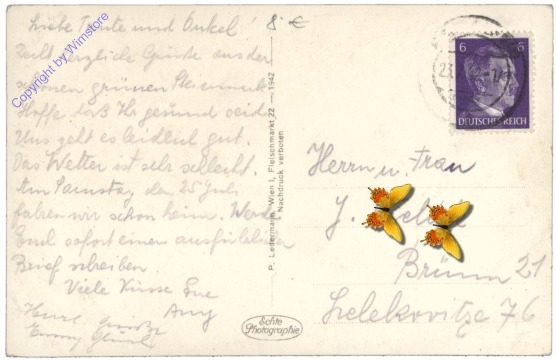 Liebe Tante und Onkel!
8 €
herzliche Grüße aus der
schönen grünen Steiermark
Hoffe daß Ihr gesund seid.
Uns geht es leidlich gut.
Das Wetter ist sehr schlecht.
Am Samstag den 25 Juli
fahren wir schon heim. Werde
Euch sofort einen ausführlichen
Brief schreiben
Viele Küsse Eure
Copyright by Wimstore
P. Ledermann, Wien I, Fleischmarkt 22 — 1942
Nachdruck verboten
Echte
Photographie
6 6
DEUTSCHES REICH
23.
Herrn u. Frau
J.
Brünn 21
76